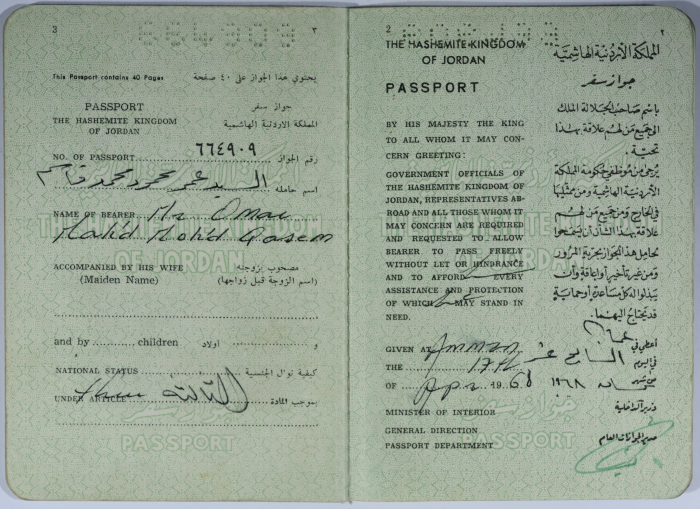 3
٣
This Passport contains 40 Pages
يحتوي هذا الجواز على ٤٠ صفحة
PASSPORT
جواز سفر
THE HASHEMITE KINGDOM
OF JORDAN
المملكة الاردنية الهاشمية
NO. OF PASSPORT ٦٦٤٩٠٩ رقم الجواز
السيد عمر محمود محمد قاسم اسم حامله
NAME OF BEARER Mr Omar
Mohd Qasem
ACCOMPANIED BY HIS WIFE
(Maiden Name)
مصحوب بزوجته
(اسم الزوجة قبل زواجها)
and by children و اولاد
NATIONAL STATUS كيفية نوال الجنسية
UNDER ARTICLE الثالثة بموجب المادة
PASSPORT
جواز سفر
2
٢
THE HASHEMITE KINGDOM
OF JORDAN
PASSPORT
BY HIS MAJESTY THE KING
TO ALL WHOM IT MAY CON-
CERN GREETING:
GOVERNMENT OFFICIALS OF
THE HASHEMITE KINGDOM OF
JORDAN, REPRESENTATIVES AB-
ROAD AND ALL THOSE WHOM IT
MAY CONCERN ARE REQUIRED
AND REQUESTED TO ALLOW
BEARER TO PASS FREELY
WITHOUT LET OR HINDRANCE
AND TO AFFORD EVERY
ASSISTANCE AND PROTECTION
OF WHICH he MAY STAND IN
NEED.
GIVEN AT Amman
THE 17th
OF Apr 1968
MINISTER OF INTERIOR
GENERAL DIRECTION
PASSPORT DEPARTMENT
المملكة الأردنية الهاشمية
جواز سفر
باسم صاحب الجلالة الملك
الى جميع من لهم علاقة بهذا
تحية.
يرجى من موظفي حكومة المملكة
الأردنية الهاشمية ومن ممثليها
في الخارج ومن جميع من لهم
علاقة بهذا الشأن أن يسمحوا
لحامل هذا الجواز بحرية المرور
ومن غير تأخير أو إعاقة وأن
يبذلوا له كل مساعدة أو حماية
قد يحتاج اليهما.
أعطي في عمان
في اليوم السابع عشر
من شهر نيسان ١٩٦٨
وزير الداخلية
مدير الجوازات العام